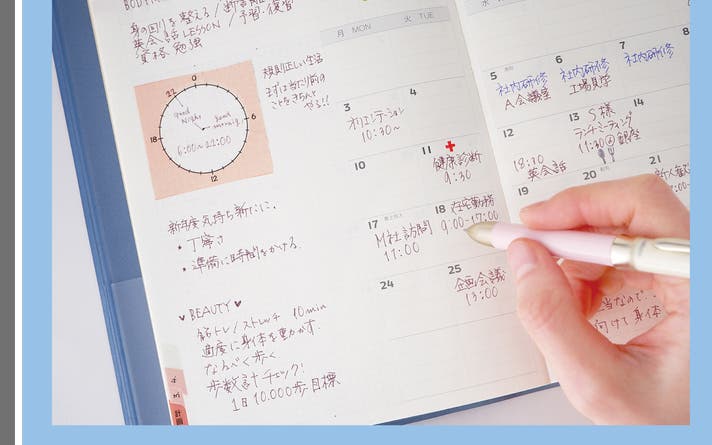 身の回りを整える/断
英会話LESSON/予習・復習
資格 勉強
0
22
6
18
12
Good Night
Good morning
6:00~22:00
規則正しい生活
まずは当たり前の
ことをきちんと
やる!!
新年度気持ち新たに。
・丁寧さ
・準備に時間をかける
♥BEAUTY♥
筋トレ/ストレッチ 10min
適度に身体を動かす。
なるべく歩く
歩数計チェック!
1日10.000歩目標
計画
月 MON
火 TUE
水
3
オリエンテーション
10:30~
4
5
社内研修
A会議室
6
社内研修
工場見学
7
社内研修
8
10
11
健康診断
9:30
12
18:30
英会話
13
S様
ランチミーティング
11:30@銀座
14
17
M社訪問
11:00
18
在宅勤務
9:00-17:00
19
20
21
新人歓
24
25
企画会議
13:00
当なので..
向けて身体